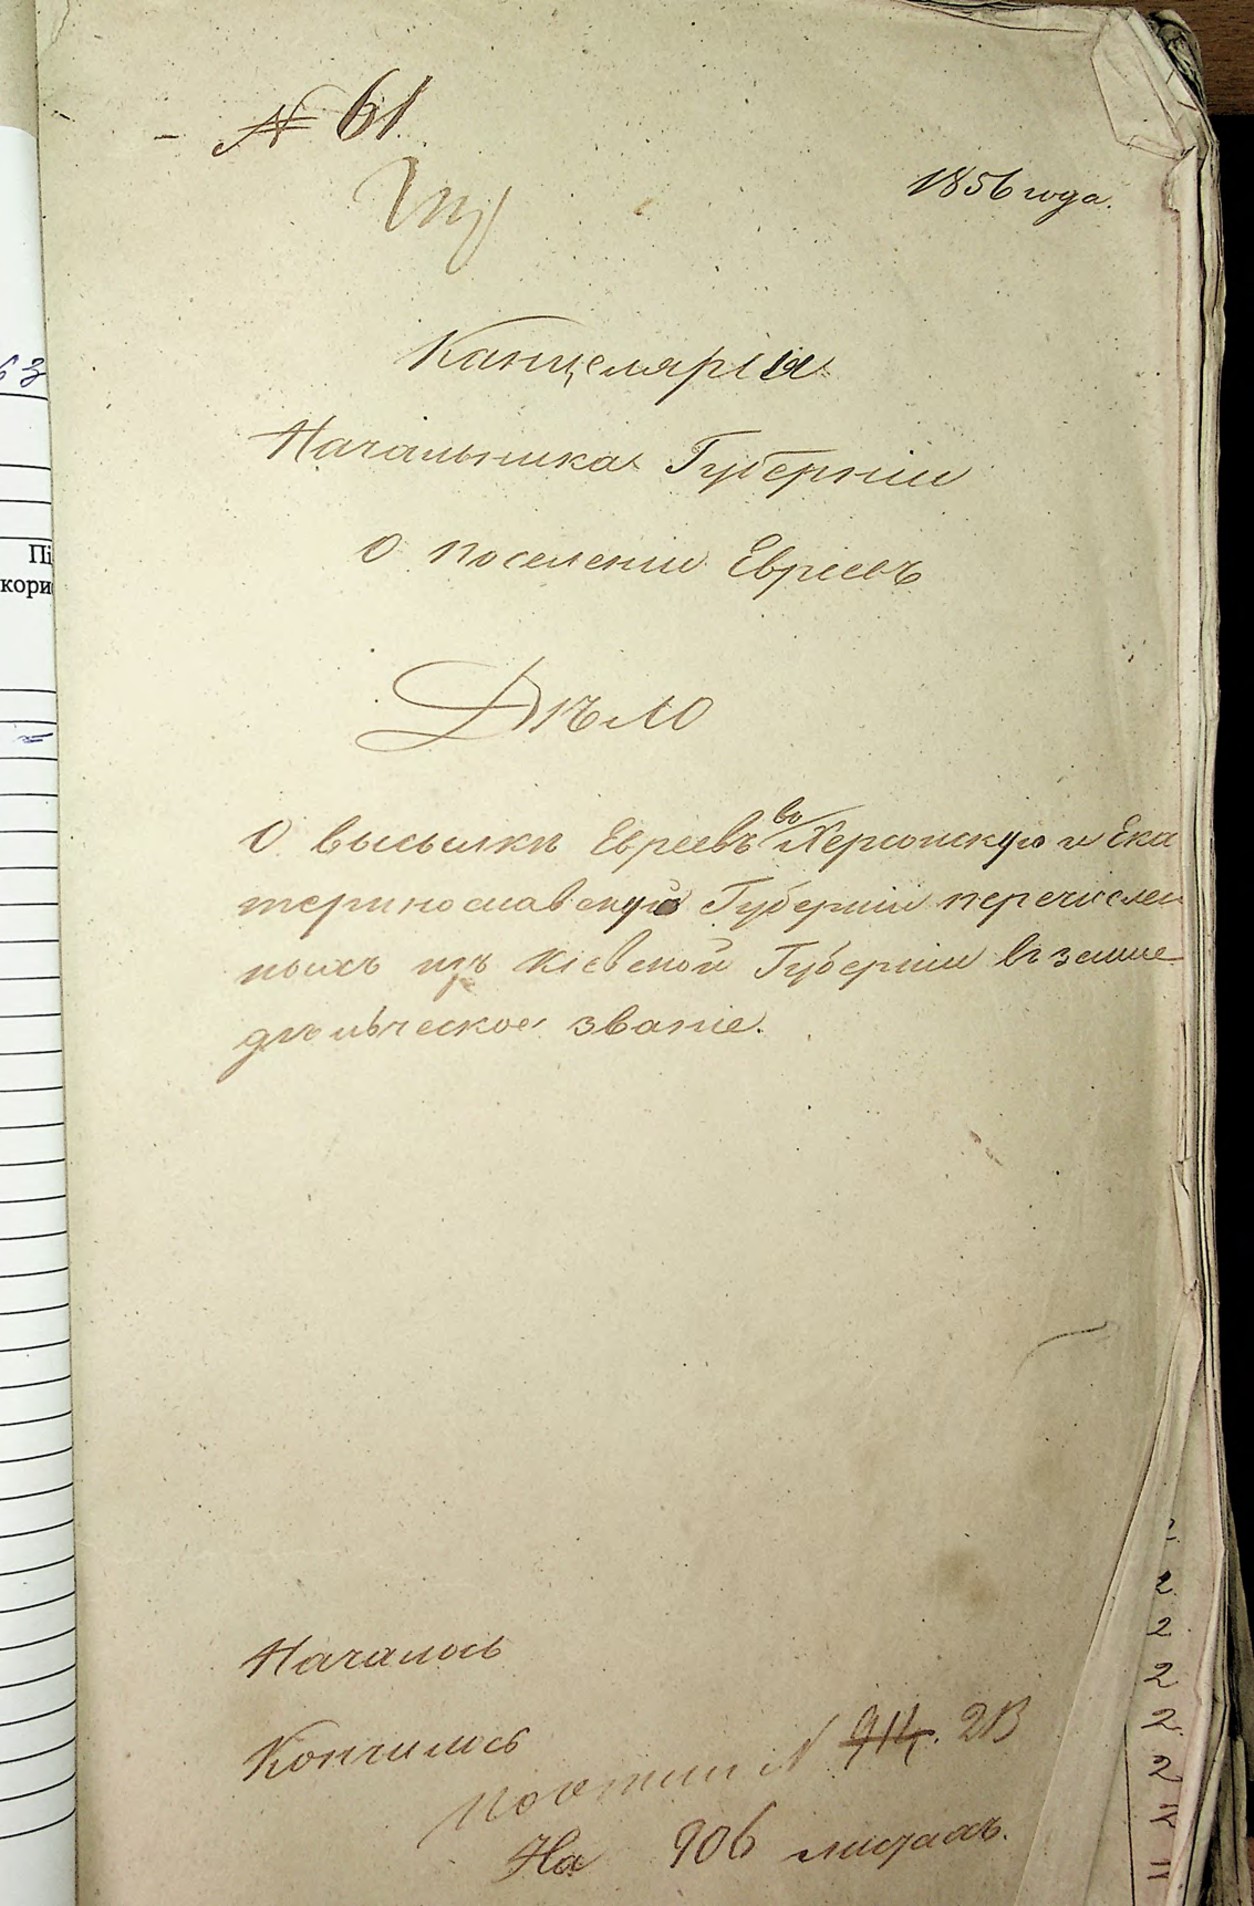 № 61
1856 года.
63
Канцелярія
Начальника Губерніи
Пі
кори
О поселеніи Евреевъ
Дѣло
О высылкѣ Евреевъ во Херсонскую и Ека
теринославскую Губерніи перечислен
ныхъ изъ Кіевской Губерніи въ земле
дѣльческое званіе.
2
2
2
2
2
2
Началось
Кончилось
По описи № 914. 2В
На 906 листахъ.